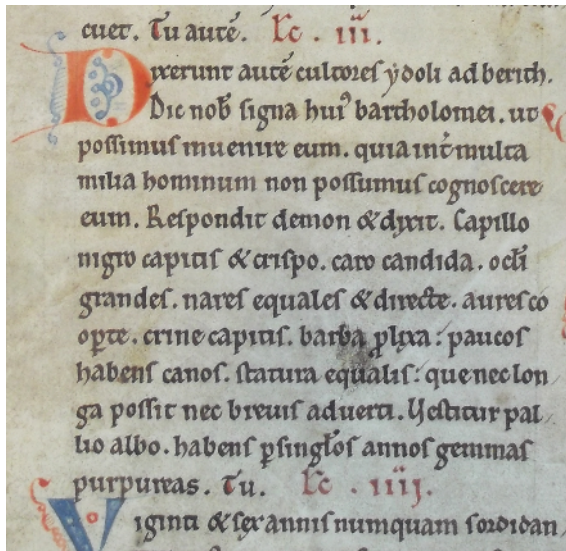 cuet. Tu autē. Lc̄. iii.
Dixerunt autē cultores ydoli ad berith.
Dic nob̄ signa huiꝰ bartholomei. ut
possimus inuenire eum. quia int̄ multa
milia hominum non possumus cognoscere
eum. Respondit demon & dixit. Capillo
nigro capitis & crispo. caro candida. ocl̄i
grandes. nares equales & directe. aures co
oꝑte. crine capitis. barba ꝓlixa: paucos
habens canos. statura equalis: que nec lon
ga possit nec breuis aduerti. Uestitur pal
lio albo. habens ꝑ singl̄os annos gemmas
purpureas. Tu. Lc̄. iiii.
Viginti & sex annis numquam sordidan